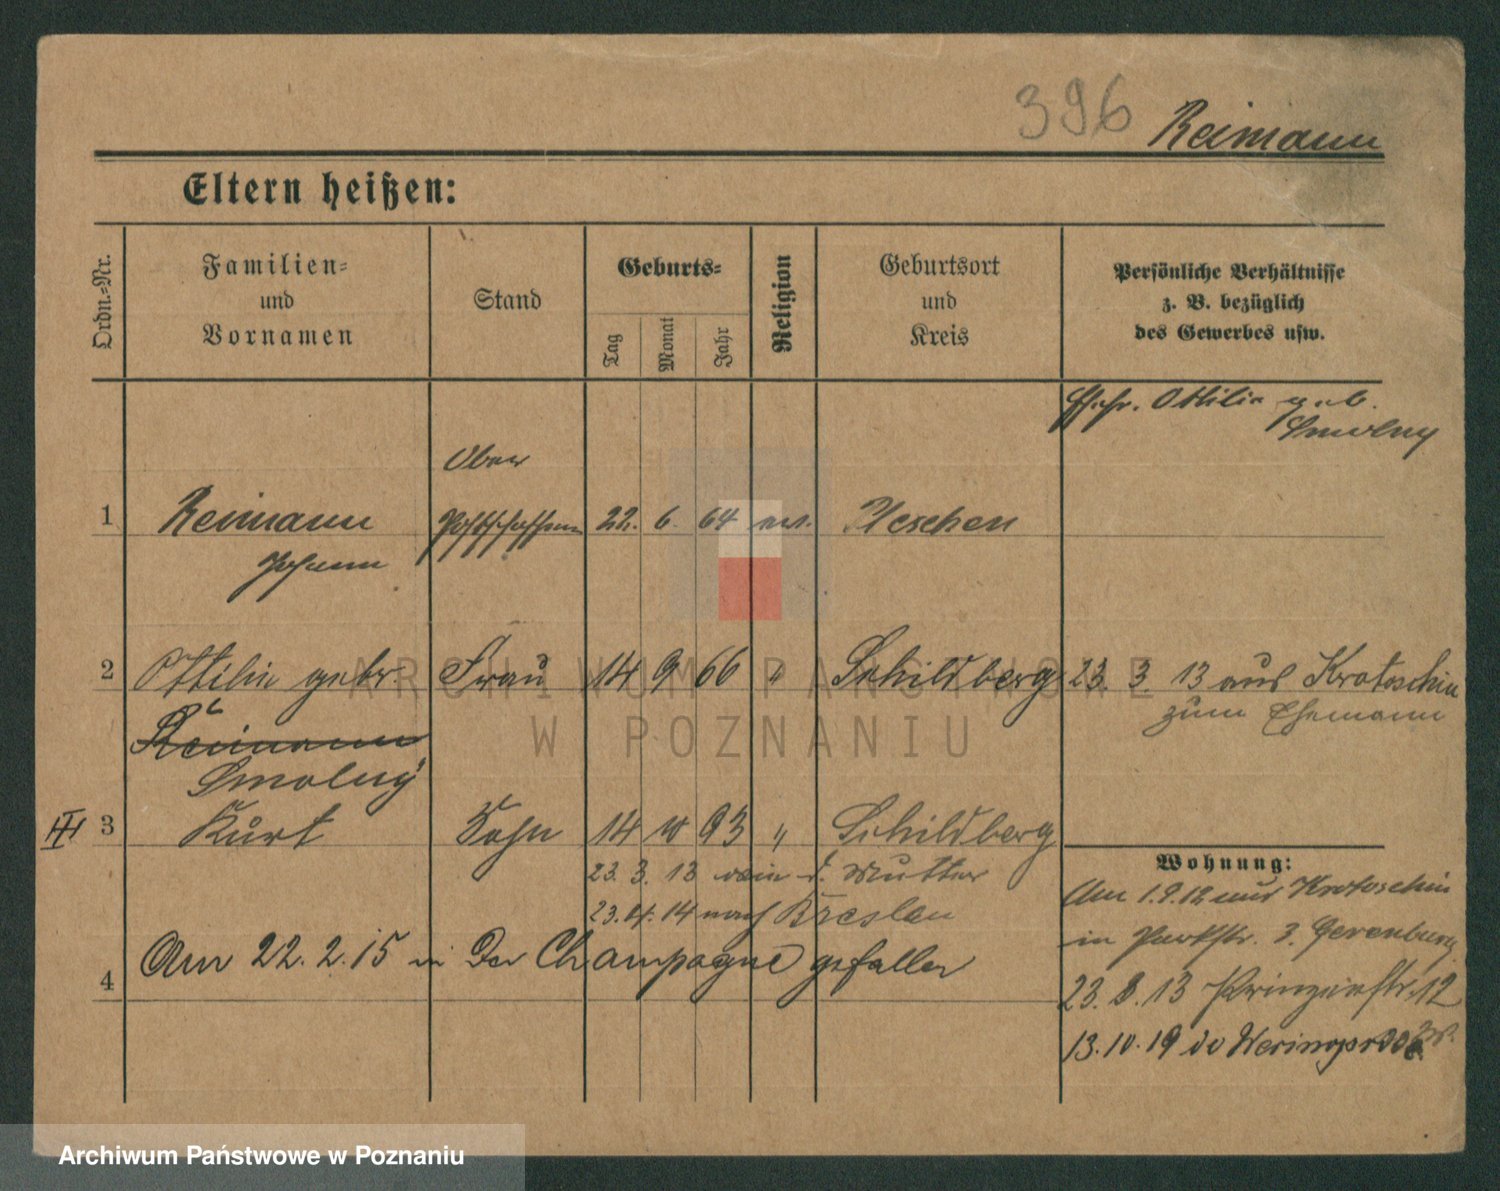 396 Reimann
Eltern heißen:
Ordn.-Nr.
Familien-
und
Vornamen
Stand
Geburts-
Tag
Monat
Jahr
Religion
Geburtsort
und
Kreis
Persönliche Verhältnisse
z. B. bezüglich
des Gewerbes usw.
Ottilie geb.
Smolny
Ober
1 Reimann 22. 6. 64 ev. Pleschen
Johann
2 Ottilie gebr. Frau 14 9 66 " Schildberg 23. 3. 13 aus Krotoschin
zum Ehemann
Reimann
Smolny
III 3 Kurt Sohn 14 10 93 " Schildberg
23. 3. 13 d. Mutter
23. 4. 14 nach Breslau
4 Am 22. 2. 15 in der Champagne gefallen
Wohnung:
Am 1.9.12 aus Krotoschin
in Parkstr. 3.
23. 3. 13 Prinzenstr. 12
13. 10. 19
ARCHIWUM PAŃSTWOWE
W POZNANIU
Archiwum Państwowe w Poznaniu